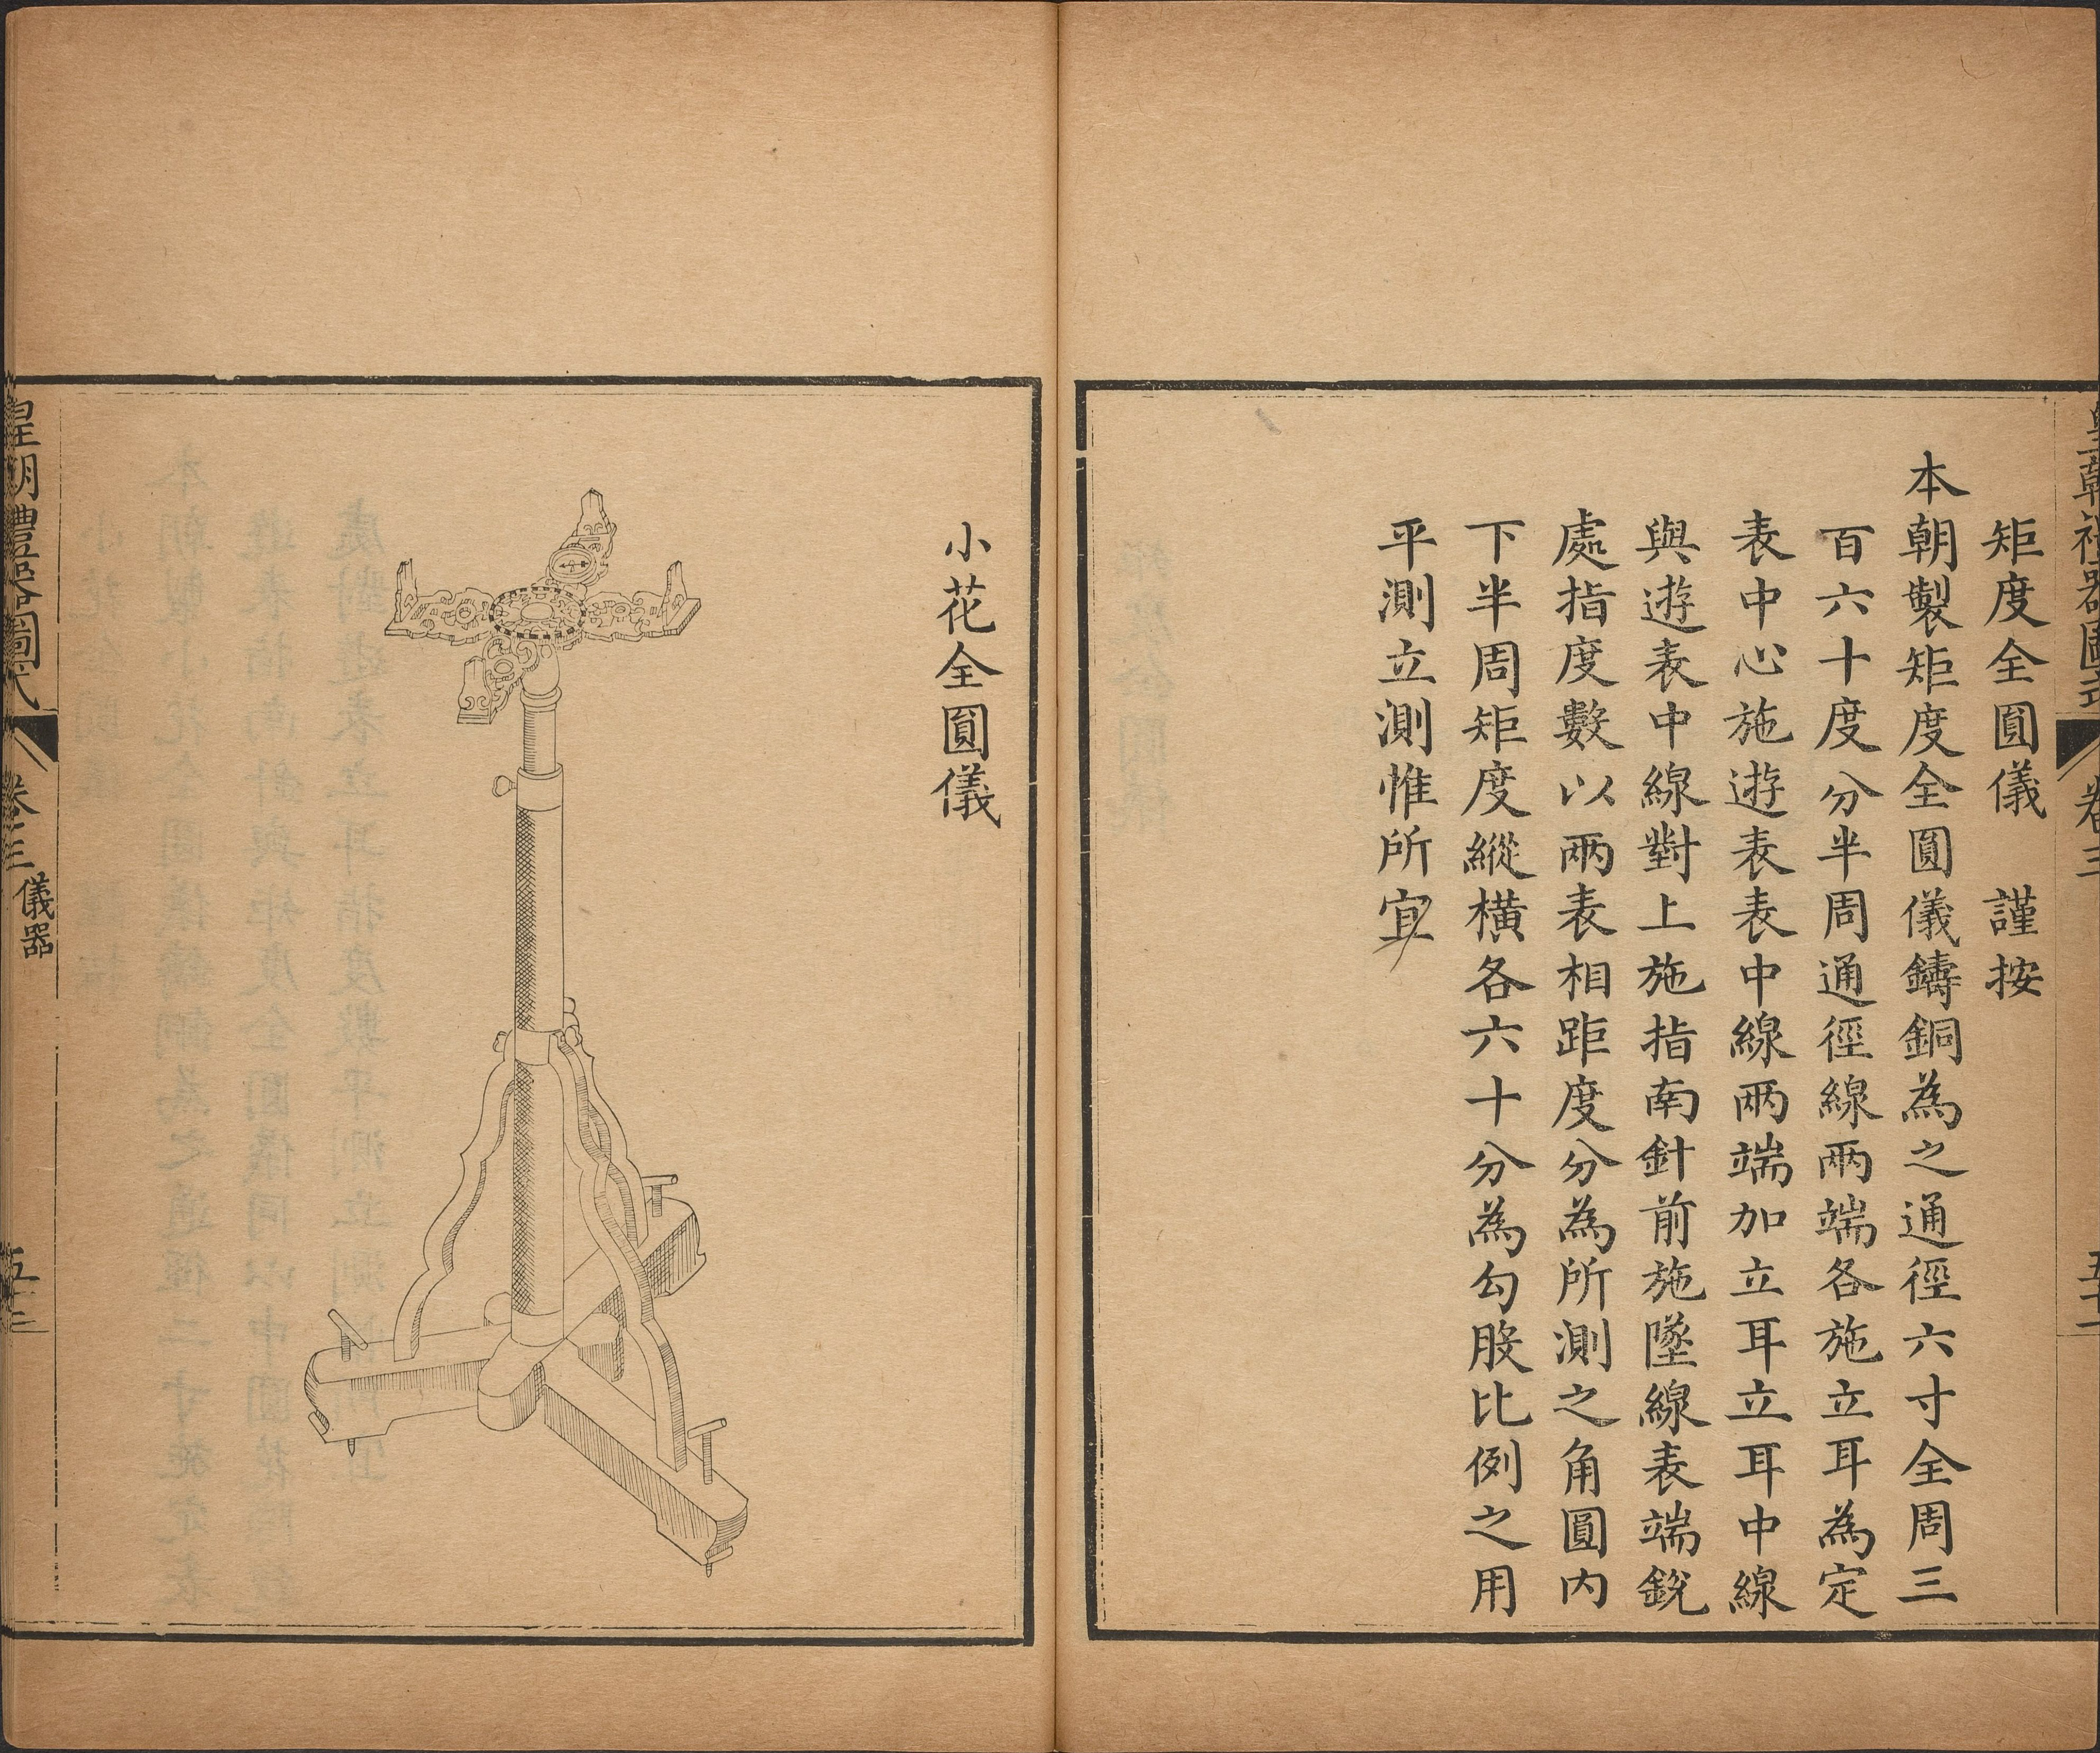 矩度全圓儀 謹按
本朝製矩度全圓儀鑄銅為之通徑六寸全周三
百六十度分半周通徑線兩端各施立耳為定
表中心施遊表表中線兩端加立耳立耳中線
與遊表中線對上施指南針前施墜線表端銳
處指度數以兩表相距度分為所測之角圓内
下半周矩度縱橫各六十分為勾股比例之用
平測立測惟所宜
小花全圓儀
皇朝禮器圖式 卷三 儀器 五十三